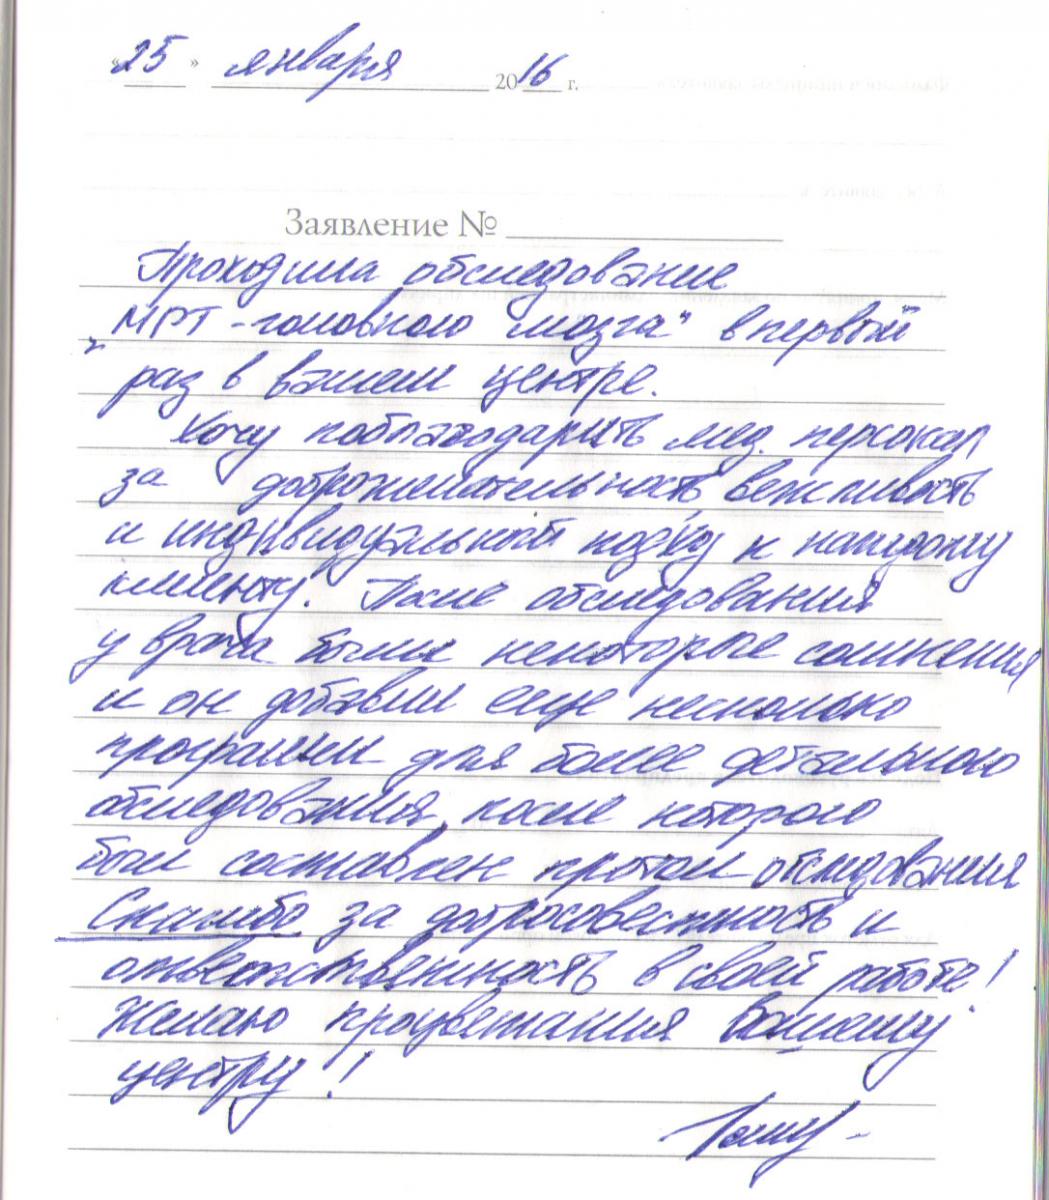 «25» января 2016 г.
Заявление №
Проходила обследование
„МРТ - головного мозга" в первой
раз в вашем центре.
Хочу поблагодарить мед. персонал
за доброжелательность, вежливость
и индивидуальной подход к каждому
клиенту. После обследования
у врача были некоторые сомнения
и он добавил еще несколько
программ для более детального
обследования, после которого
был составлен протокол обследования
Спасибо за добросовестность и
ответственность в своей работе!
Желаю процветания Вашему
центру!